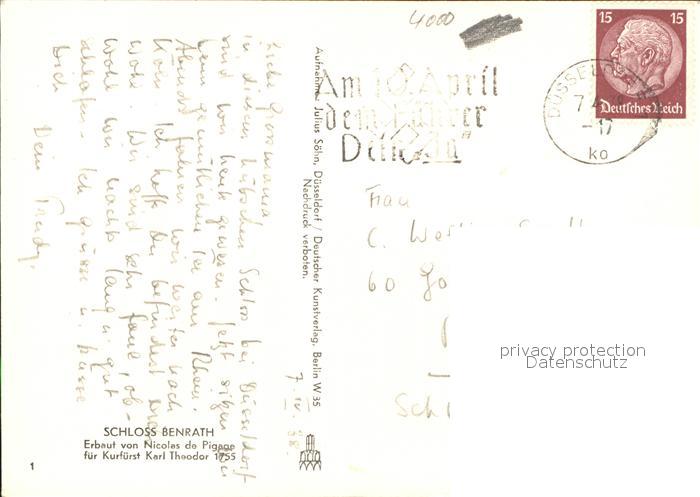 4000
15 15
Deutsches Reich
DÜSSELDORF
7.4.
-17
ko
Am 10. April
dem Führer
Dein „Ja“
Liebe Grossmama
in diesem hübschen Schloss bei Düsseldorf
sind wir heute gewesen. Jetzt sitzen wir
beim gemütlichen Tee am Rhein.
Abends fahren wir weiter nach
Köln. Ich hoffe Du befindest Dich
wohl. Wir sind sehr faul, ob-
wohl wir nachts lang u. gut
schlafen. Ich grüsse u. küsse
Dich
Dein Trudy.
7. IV. 38.
Aufnahme Julius Söhn, Düsseldorf / Deutscher Kunstverlag, Berlin W 35
Nachdruck verboten.
Frau
C.
60
SCHLOSS BENRATH
Erbaut von Nicolas de Pigage
für Kurfürst Karl Theodor 1755
1
privacy protection
Datenschutz